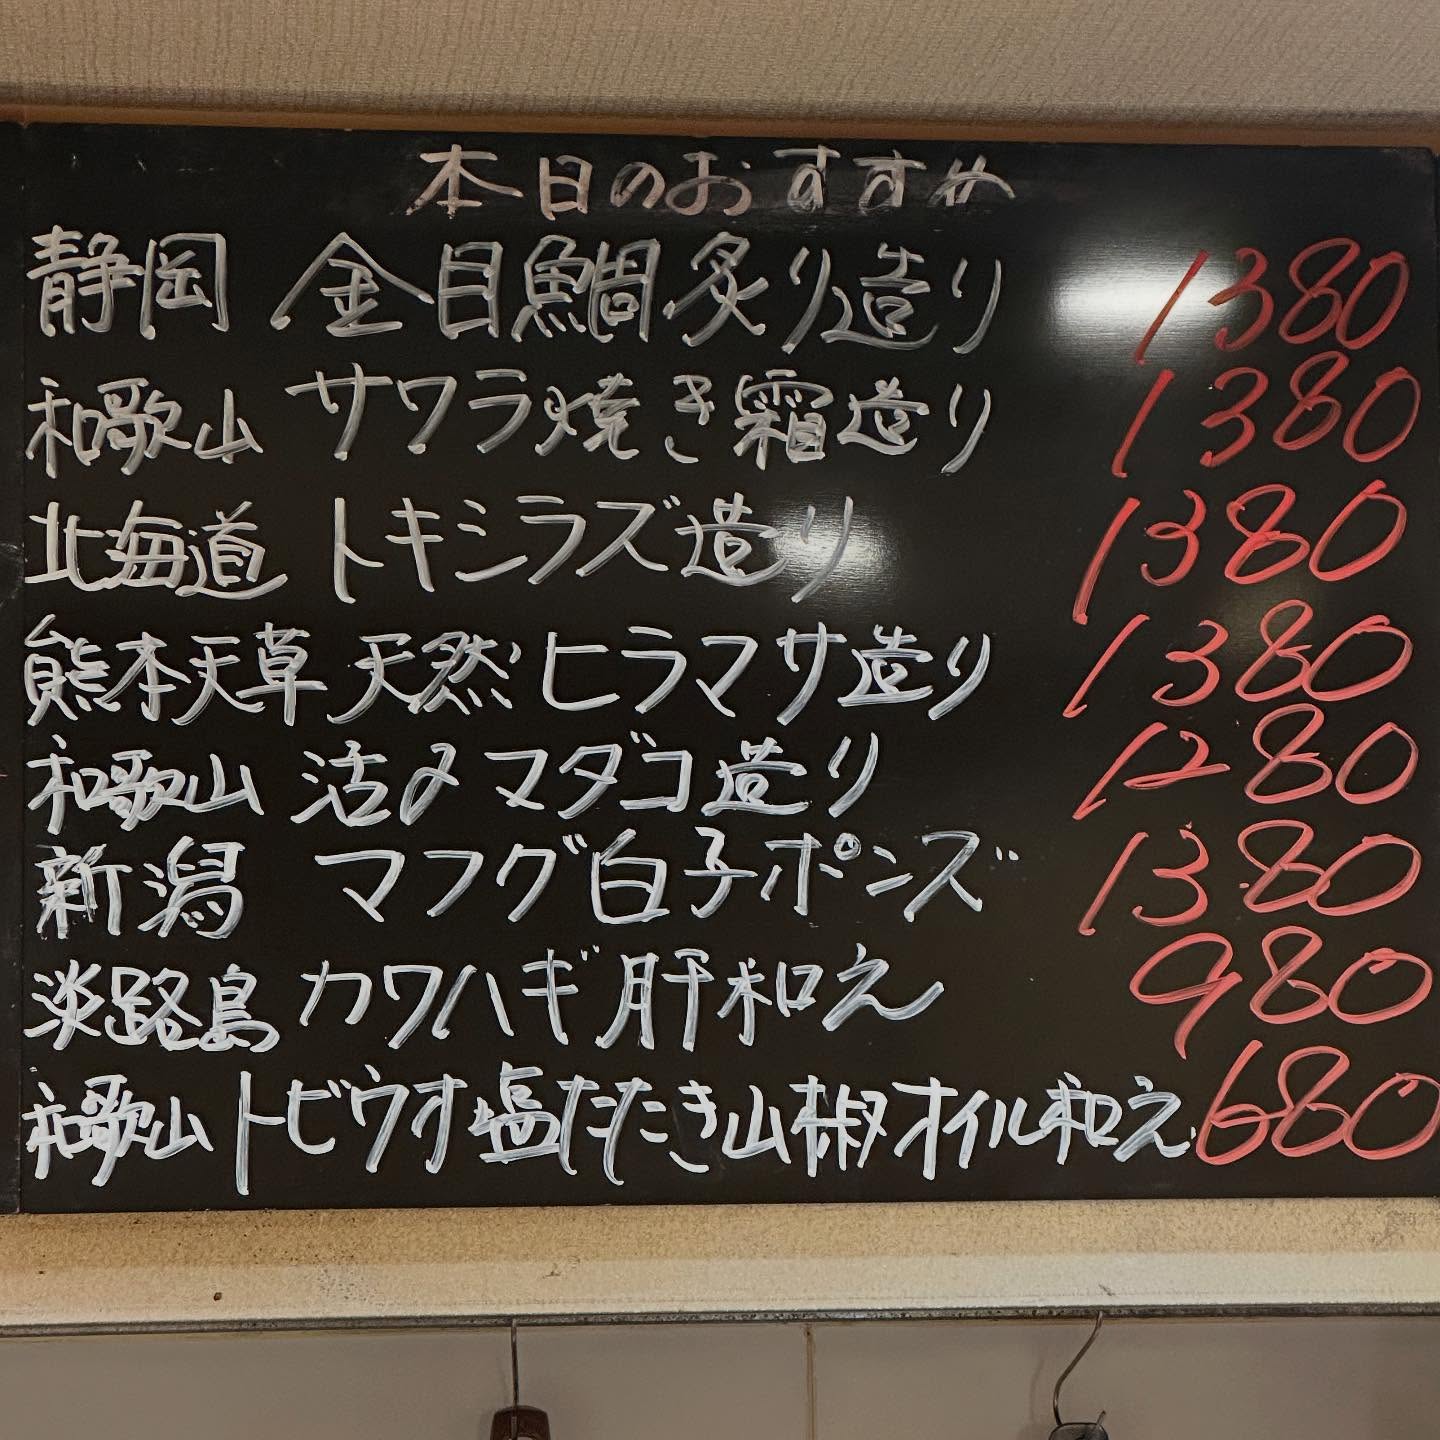 本日のおすすめ
静岡 金目鯛炙り造り 1380
和歌山 サワラ焼き霜造り 1380
北海道 トキシラズ造り 1380
熊本天草 天然ヒラマサ造り 1380
和歌山 活〆マダコ造り 1280
新潟 マフグ白子ポンズ 1380
淡路島 カワハギ肝和え 980
和歌山 トビウオ塩たたき山椒オイル和え 680